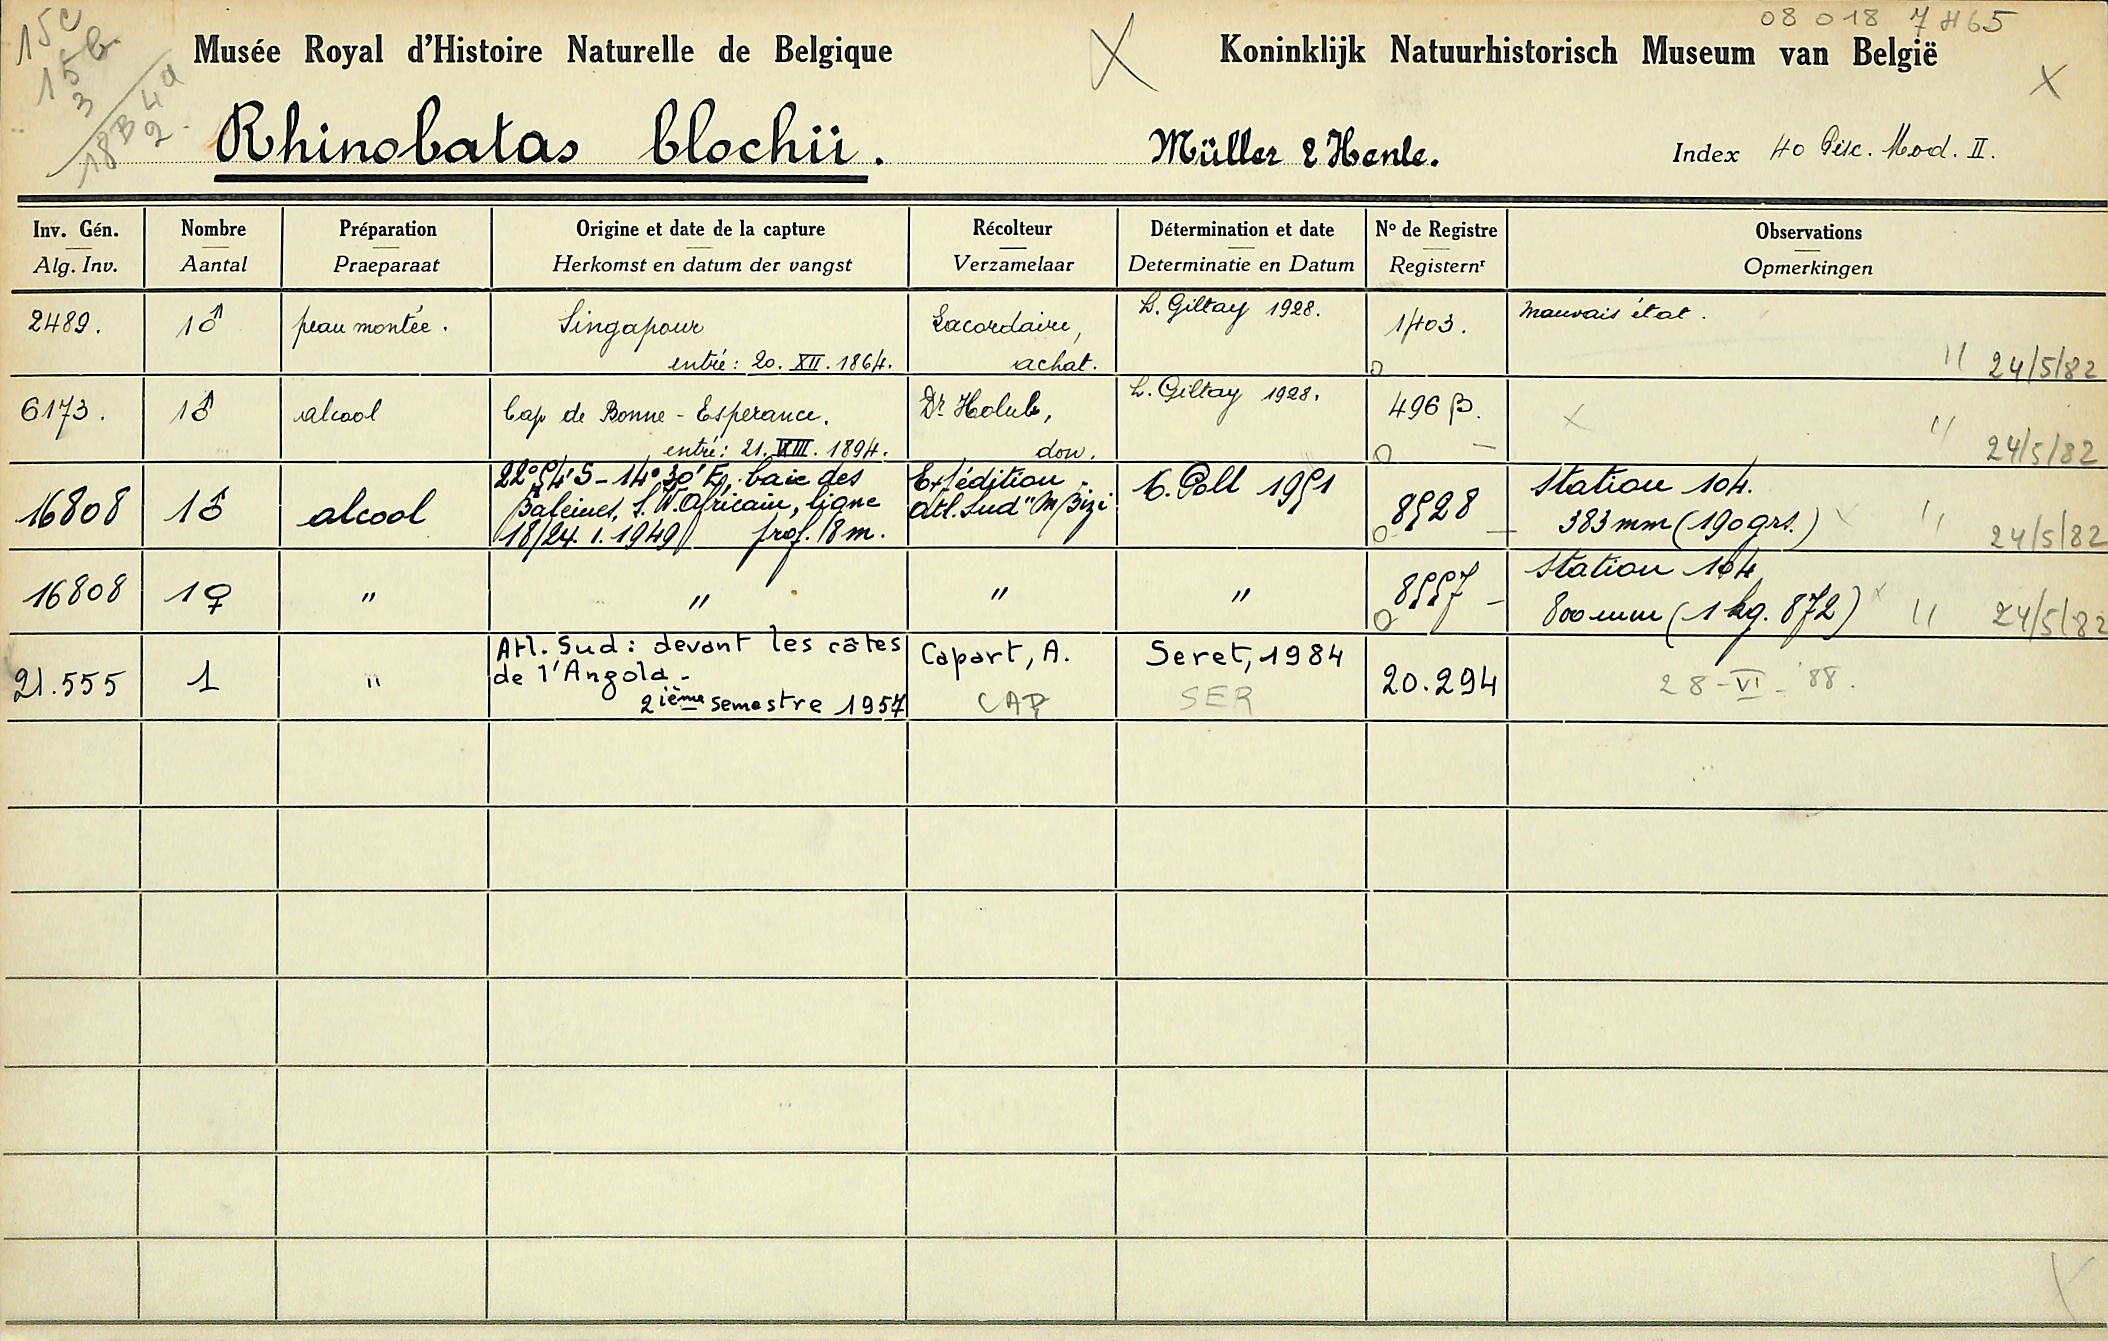 15c
15b
3
4a
18B 2
08 018 7465
Musée Royal d'Histoire Naturelle de Belgique
Koninklijk Natuurhistorisch Museum van België
Rhinobatas blochii.
Müller & Henle.
Index 40 Pisc. Mod. II.
Inv. Gén. Nombre Préparation Origine et date de la capture Récolteur Détermination et date No de Registre Observations
Alg. Inv. Aantal Praeparaat Herkomst en datum der vangst Verzamelaar Determinatie en Datum Registernr Opmerkingen
2489. 1♂ peau montée. Singapour Lacordaire, L. Giltay 1928. 1403. Mauvais état.
entrée: 20. XII. 1864. achat. " 24/5/82
6173. 1♂ alcool Cap de Bonne-Espérance. Dr. Holub, L. Giltay 1928. 496 β.
entré: 21. VIII. 1894. don. " 24/5/82
22°54'S - 14°30'E, baie des Expédition
16808 1♂ alcool Baleines, S.W. Africain, ligne Atl. Sud "M'Bizi M. Poll 1951 8528 Station 104.
18/24.1.1949 prof. 8m. 383 mm (190 grs.) " 24/5/82
16808 1♀ " " " " 8557 Station 104
800 mm (1 kg. 872) " 24/5/82
Atl. Sud: devant les côtes
21.555 1 " de l'Angola - Capart, A. Seret, 1984 20.294
2ième semestre 1957 CAP SER 28-VI-'88.